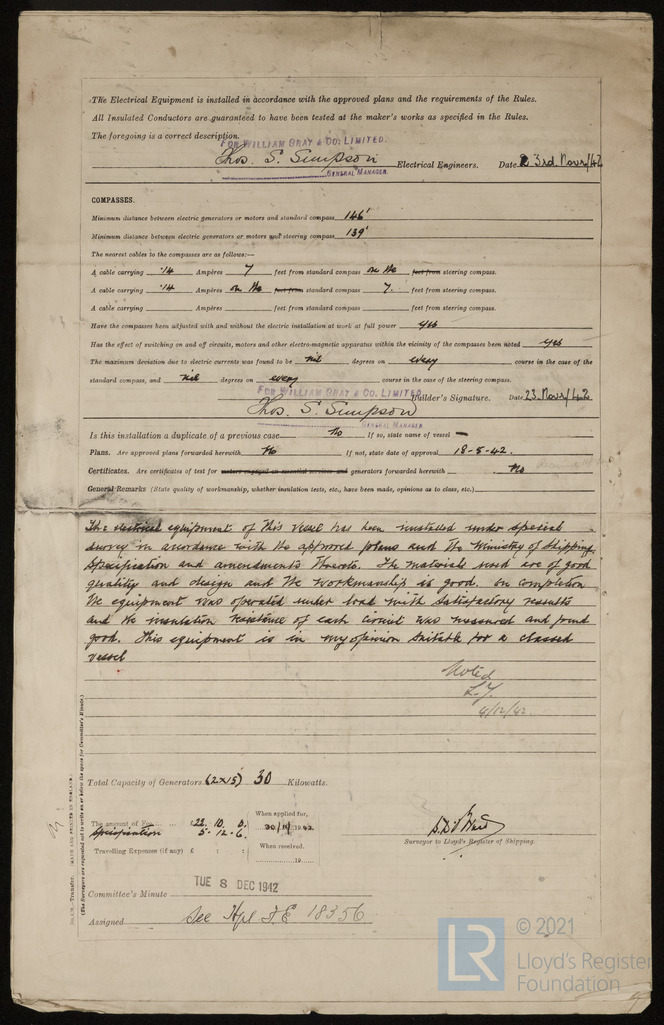 The Electrical Equipment is installed in accordance with the approved plans and the requirements of the Rules.
All Insulated Conductors are guaranteed to have been tested at the maker's works as specified in the Rules.
The foregoing is a correct description.
FOR WILLIAM GRAY & CO. LIMITED.
Thos. S. Simpson Electrical Engineers. Date 3rd. Novr/42
GENERAL MANAGER.
COMPASSES.
Minimum distance between electric generators or motors and standard compass 146'
Minimum distance between electric generators or motors and steering compass 139'
The nearest cables to the compasses are as follows:—
A cable carrying .14 Ampères 7 feet from standard compass on the feet from steering compass.
A cable carrying .14 Ampères on the feet from standard compass 7. feet from steering compass.
A cable carrying Ampères feet from standard compass feet from steering compass.
Have the compasses been adjusted with and without the electric installation at work at full power yes
Has the effect of switching on and off circuits, motors and other electro-magnetic apparatus within the vicinity of the compasses been noted yes
The maximum deviation due to electric currents was found to be nil degrees on every course in the case of the
standard compass, and nil degrees on every course in the case of the steering compass.
FOR WILLIAM GRAY & CO. LIMITED
Thos. S. Simpson Builder's Signature. Date 23. Novr/42
GENERAL MANAGER
Is this installation a duplicate of a previous case No If so, state name of vessel —
Plans. Are approved plans forwarded herewith No If not, state date of approval 18-5-42.
Certificates. Are certificates of test for motors engaged on essential services and generators forwarded herewith No
General Remarks (State quality of workmanship, whether insulation tests, etc., have been made, opinions as to class, etc.)
The electrical equipment of this vessel has been installed under special
survey in accordance with the approved plans and the Ministry of Shipping
specification and amendments thereto. The materials used are of good
quality and design and the workmanship is good. On completion
the equipment was operated under load with satisfactory results
and the insulation resistance of each circuit was measured and found
good. This equipment is in my opinion suitable for a classed
vessel
Noted
L.Y.
4/12/42
Total Capacity of Generators (2x15) 30 Kilowatts.
The amount of Fee £22. 10. 0. When applied for, 30/11/1942
Specification 5. 12. 6.
Travelling Expenses (if any) £ : : When received. 19
Surveyor to Lloyd's Register of Shipping.
Committee's Minute TUE 8 DEC 1942
Assigned See Hpl F.E 18356
(The Surveyors are requested not to write on or below the space for Committee's Minute.)
MADE AND PRINTED IN ENGLAND.
© 2021
LR Lloyd's Register
Foundation